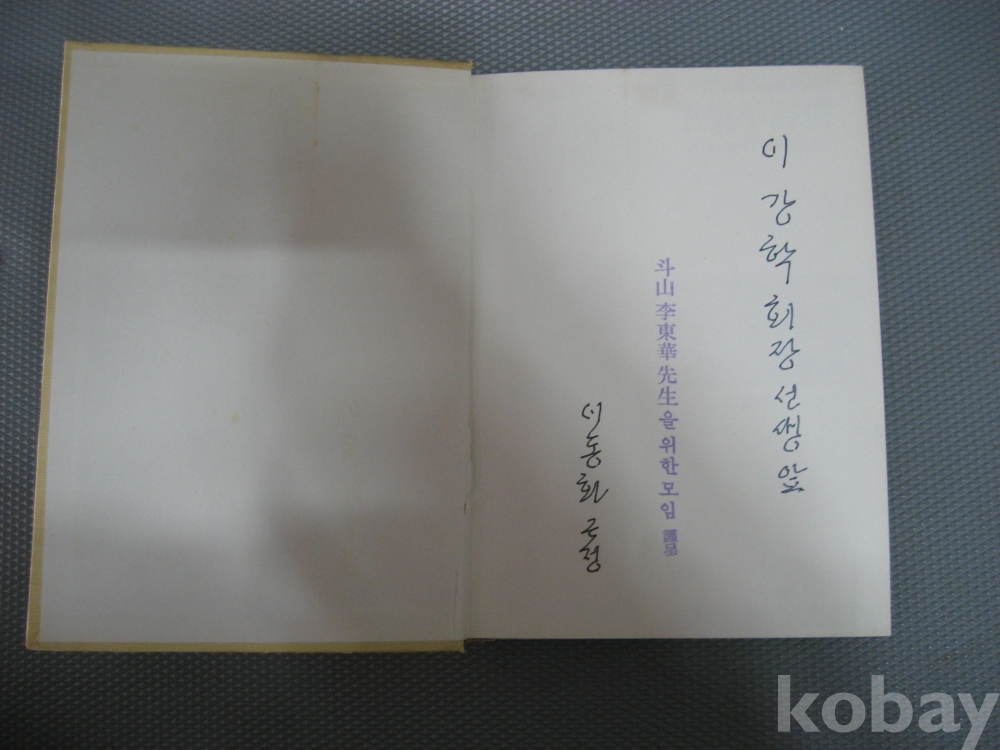 이강학 회장 선생 앞
斗山 李東華 先生을 위한 모임 謹呈
이동화 근정
kobay